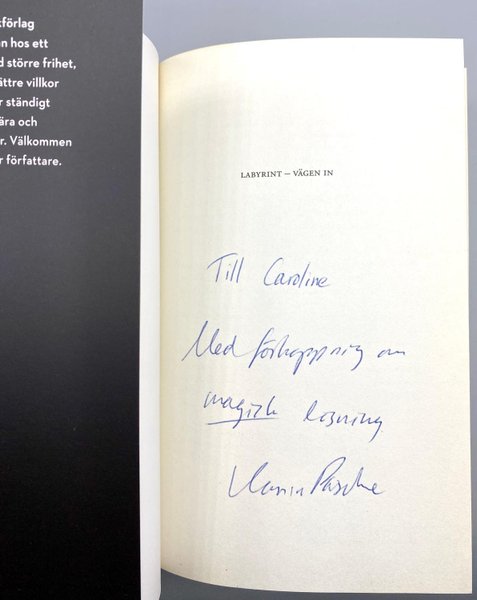 kförlag
n hos ett
d större frihet,
ättre villkor
r ständigt
ära och
r. Välkommen
r författare.
LABYRINT – VÄGEN IN
Till Caroline
Med förhoppning om
magisk läsning